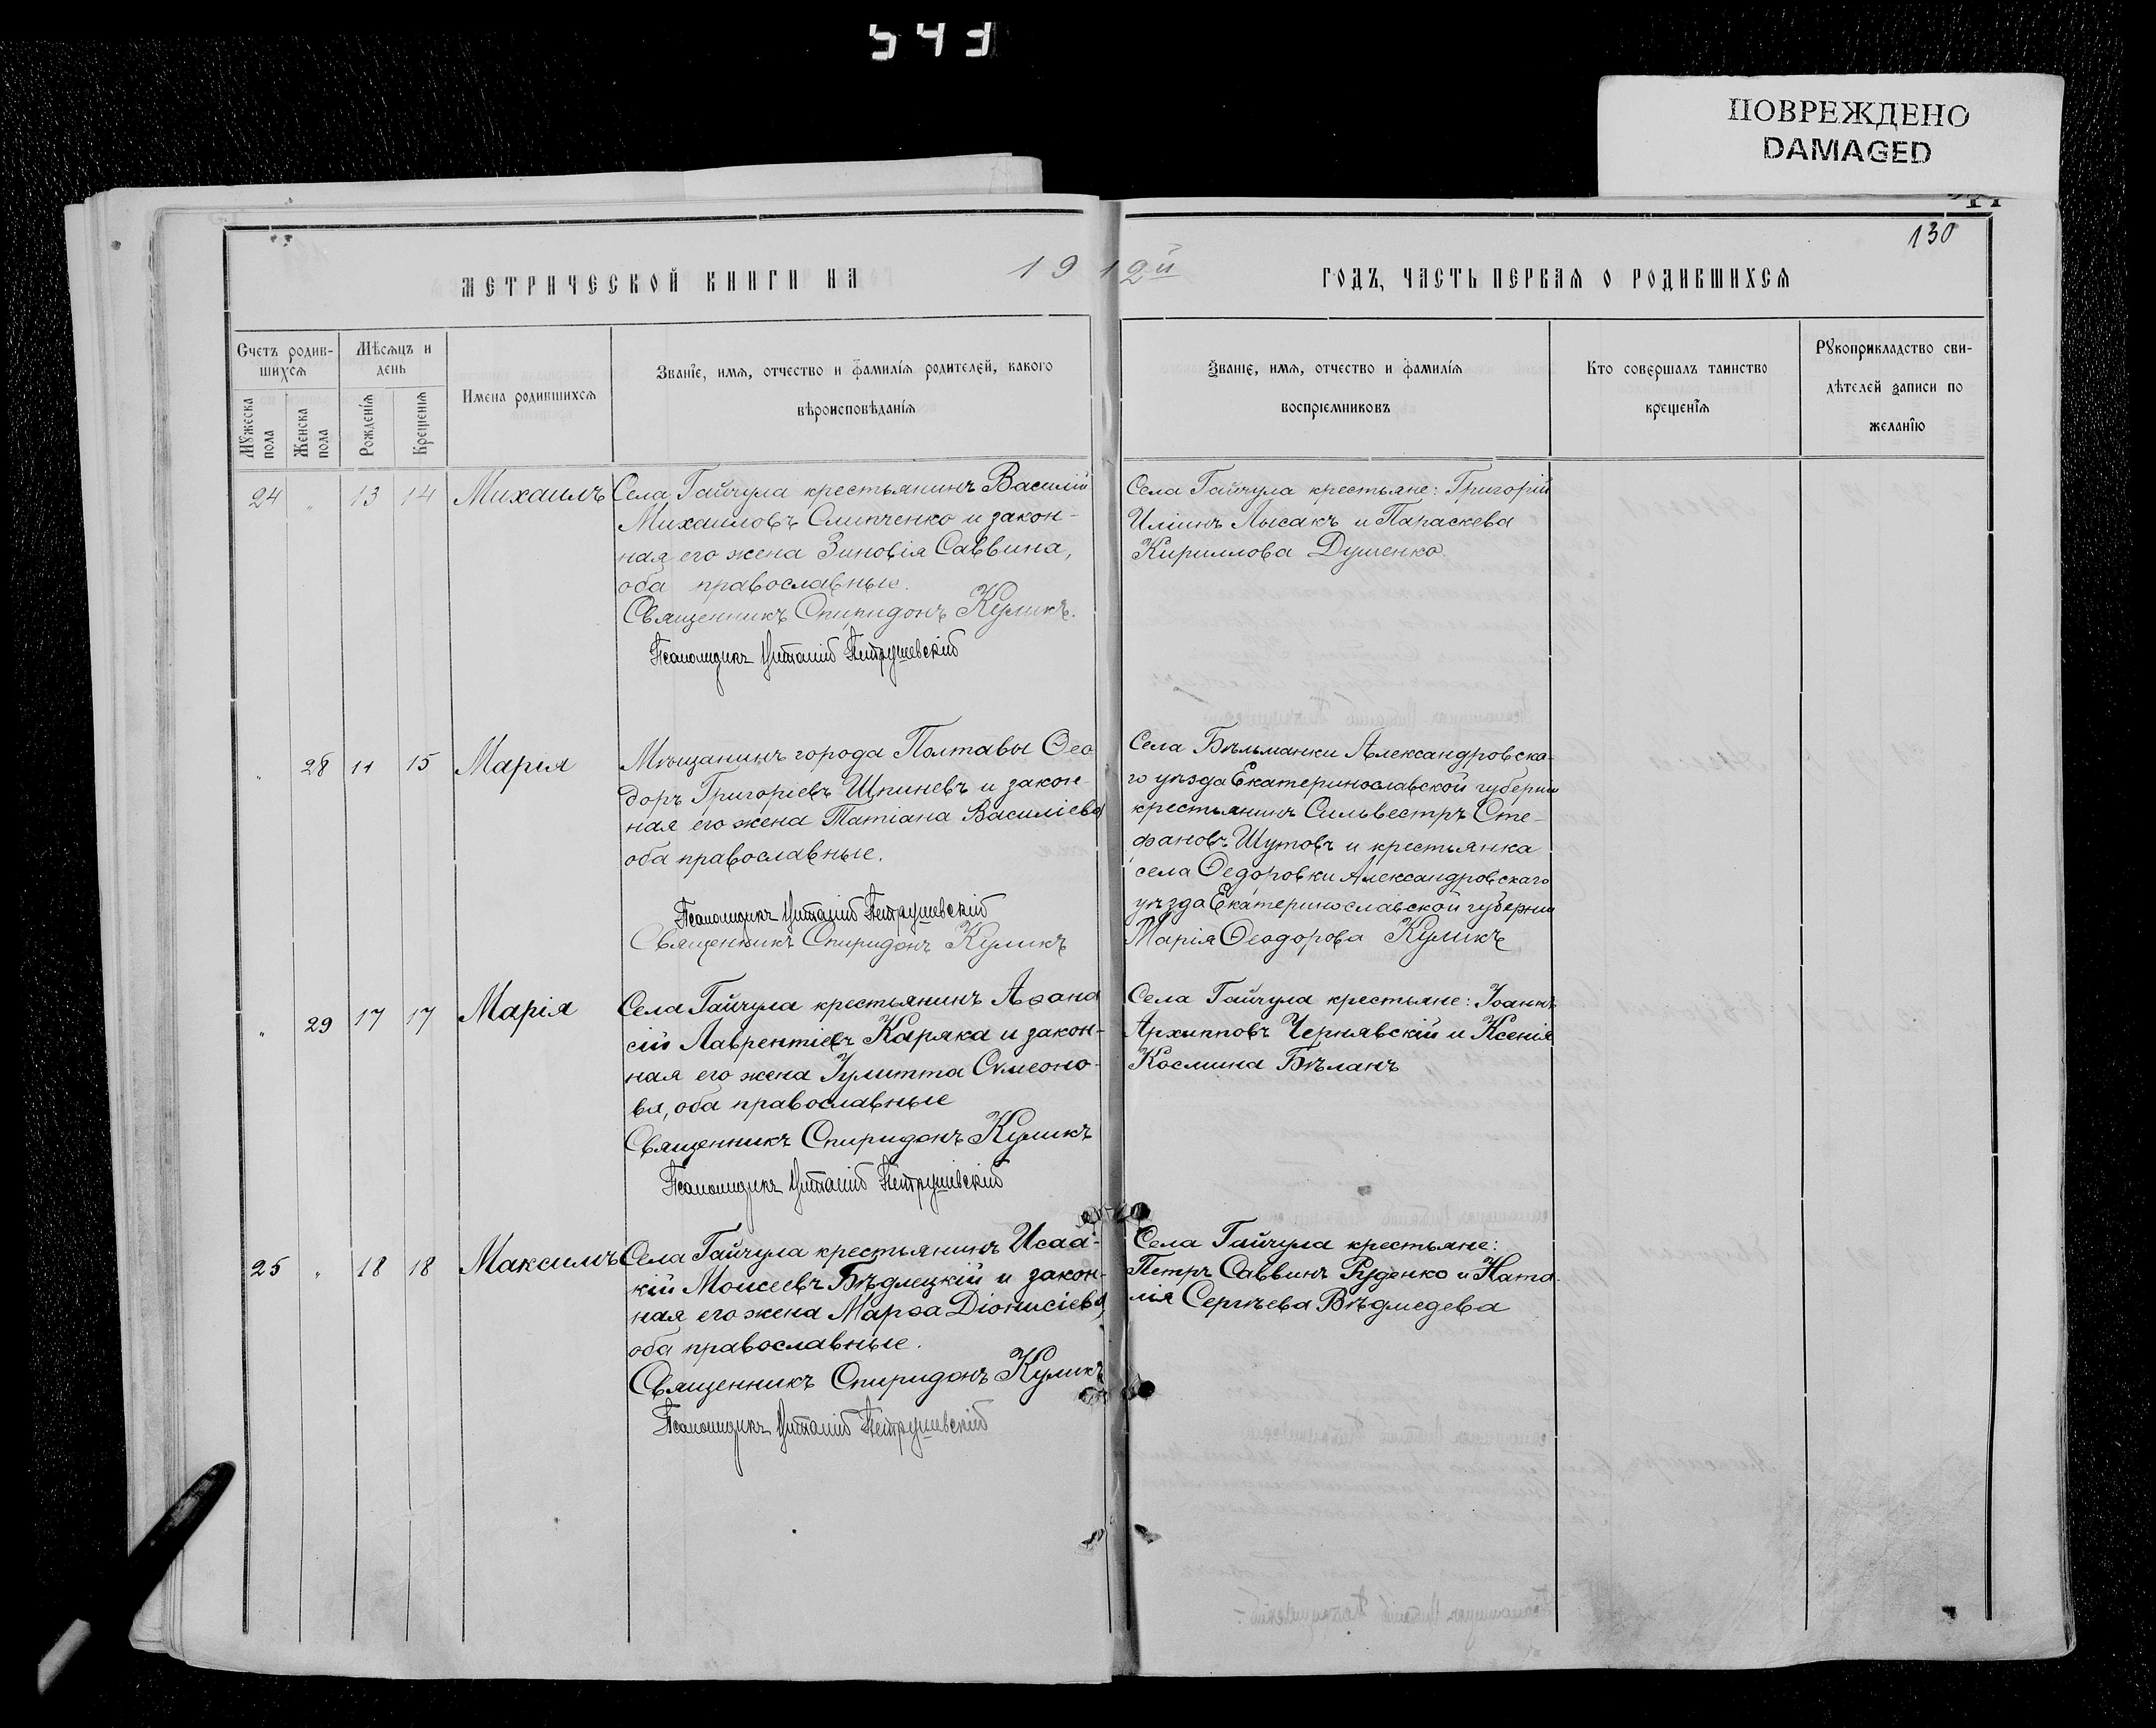 543
ПОВРЕЖДЕНО
DAMAGED
130
МЕТРИЧЕСКОЙ КНИГИ НА 1912й ГОДЪ, ЧАСТЬ ПЕРВАЯ О РОДИВШИХСЯ
Счетъ родив-
шихся
Мѣсяцъ и
день
Мужеска
пола
Женска
пола
Рожденія
Крещенія
Имена родившихся
Званіе, имя, отчество и фамилія родителей, какого
вѣроисповѣданія
Званіе, имя, отчество и фамилія
воспріемниковъ
Кто совершалъ таинство
крещенія
Рукоприкладство сви-
дѣтелей записи по
желанію
24 " 13 14 Михаилъ
Села Гайчула крестьянинъ Василій
Михаиловъ Слипченко и закон-
ная его жена Зиновія Саввина,
оба православные.
Священникъ Спиридонъ Куликъ.
Псаломщикъ Виталій Петрушевскій
Села Гайчула крестьяне: Григорій
Иліинъ Лысакъ и Параскева
Кириллова Душенко.
" 28 11 15 Марія
Мѣщанинъ города Полтавы Ѳео
доръ Григоріевъ Шпиневъ и закон-
ная его жена Татіана Василіева
оба православные.
Псаломщикъ Виталій Петрушевскій
Священникъ Спиридонъ Куликъ
Села Бѣльманки Александровска-
го уѣзда Екатеринославской губерніи
крестьянинъ Сильвестръ Сте-
фановъ Шутовъ и крестьянка
села Ѳедоровки Александровскаго
уѣзда Екатеринославской губерніи
Марія Ѳеодорова Куликъ
" 29 17 17 Марія
Села Гайчула крестьянинъ Аѳана
сій Лаврентіевъ Каряка и закон-
ная его жена Іулитта Сѵмеоно-
ва, оба православные
Священникъ Спиридонъ Куликъ
Псаломщикъ Виталій Петрушевскій
Села Гайчула крестьяне: Іоаннъ
Архипповъ Чернявскій и Ксенія
Космина Бѣланъ
25 " 18 18 Максимъ
Села Гайчула крестьянинъ Исаа-
кій Моисеевъ Бѣдлецкій и закон-
ная его жена Марѳа Діонисіева,
оба православные.
Священникъ Спиридонъ Куликъ
Псаломщикъ Виталій Петрушевскій
Села Гайчула крестьяне:
Петръ Саввинъ Руденко и Ната-
лія Сергѣева Вѣдмедева